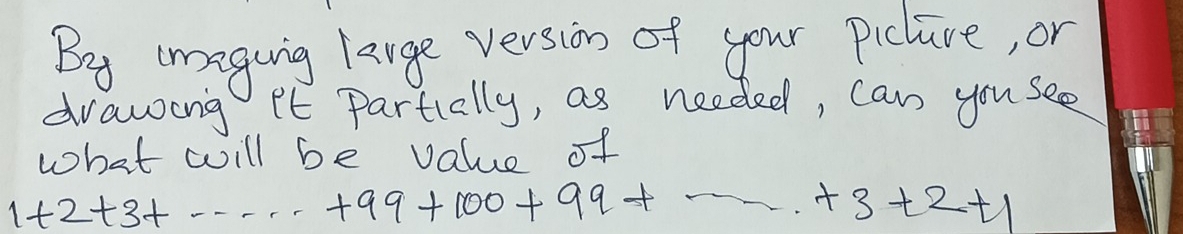 By imaging large version of your picture, or
drawing it partially, as needed, can you see
what will be value of
1+2+3+ ------ +99+100+99+ ~~~. +3+2+1